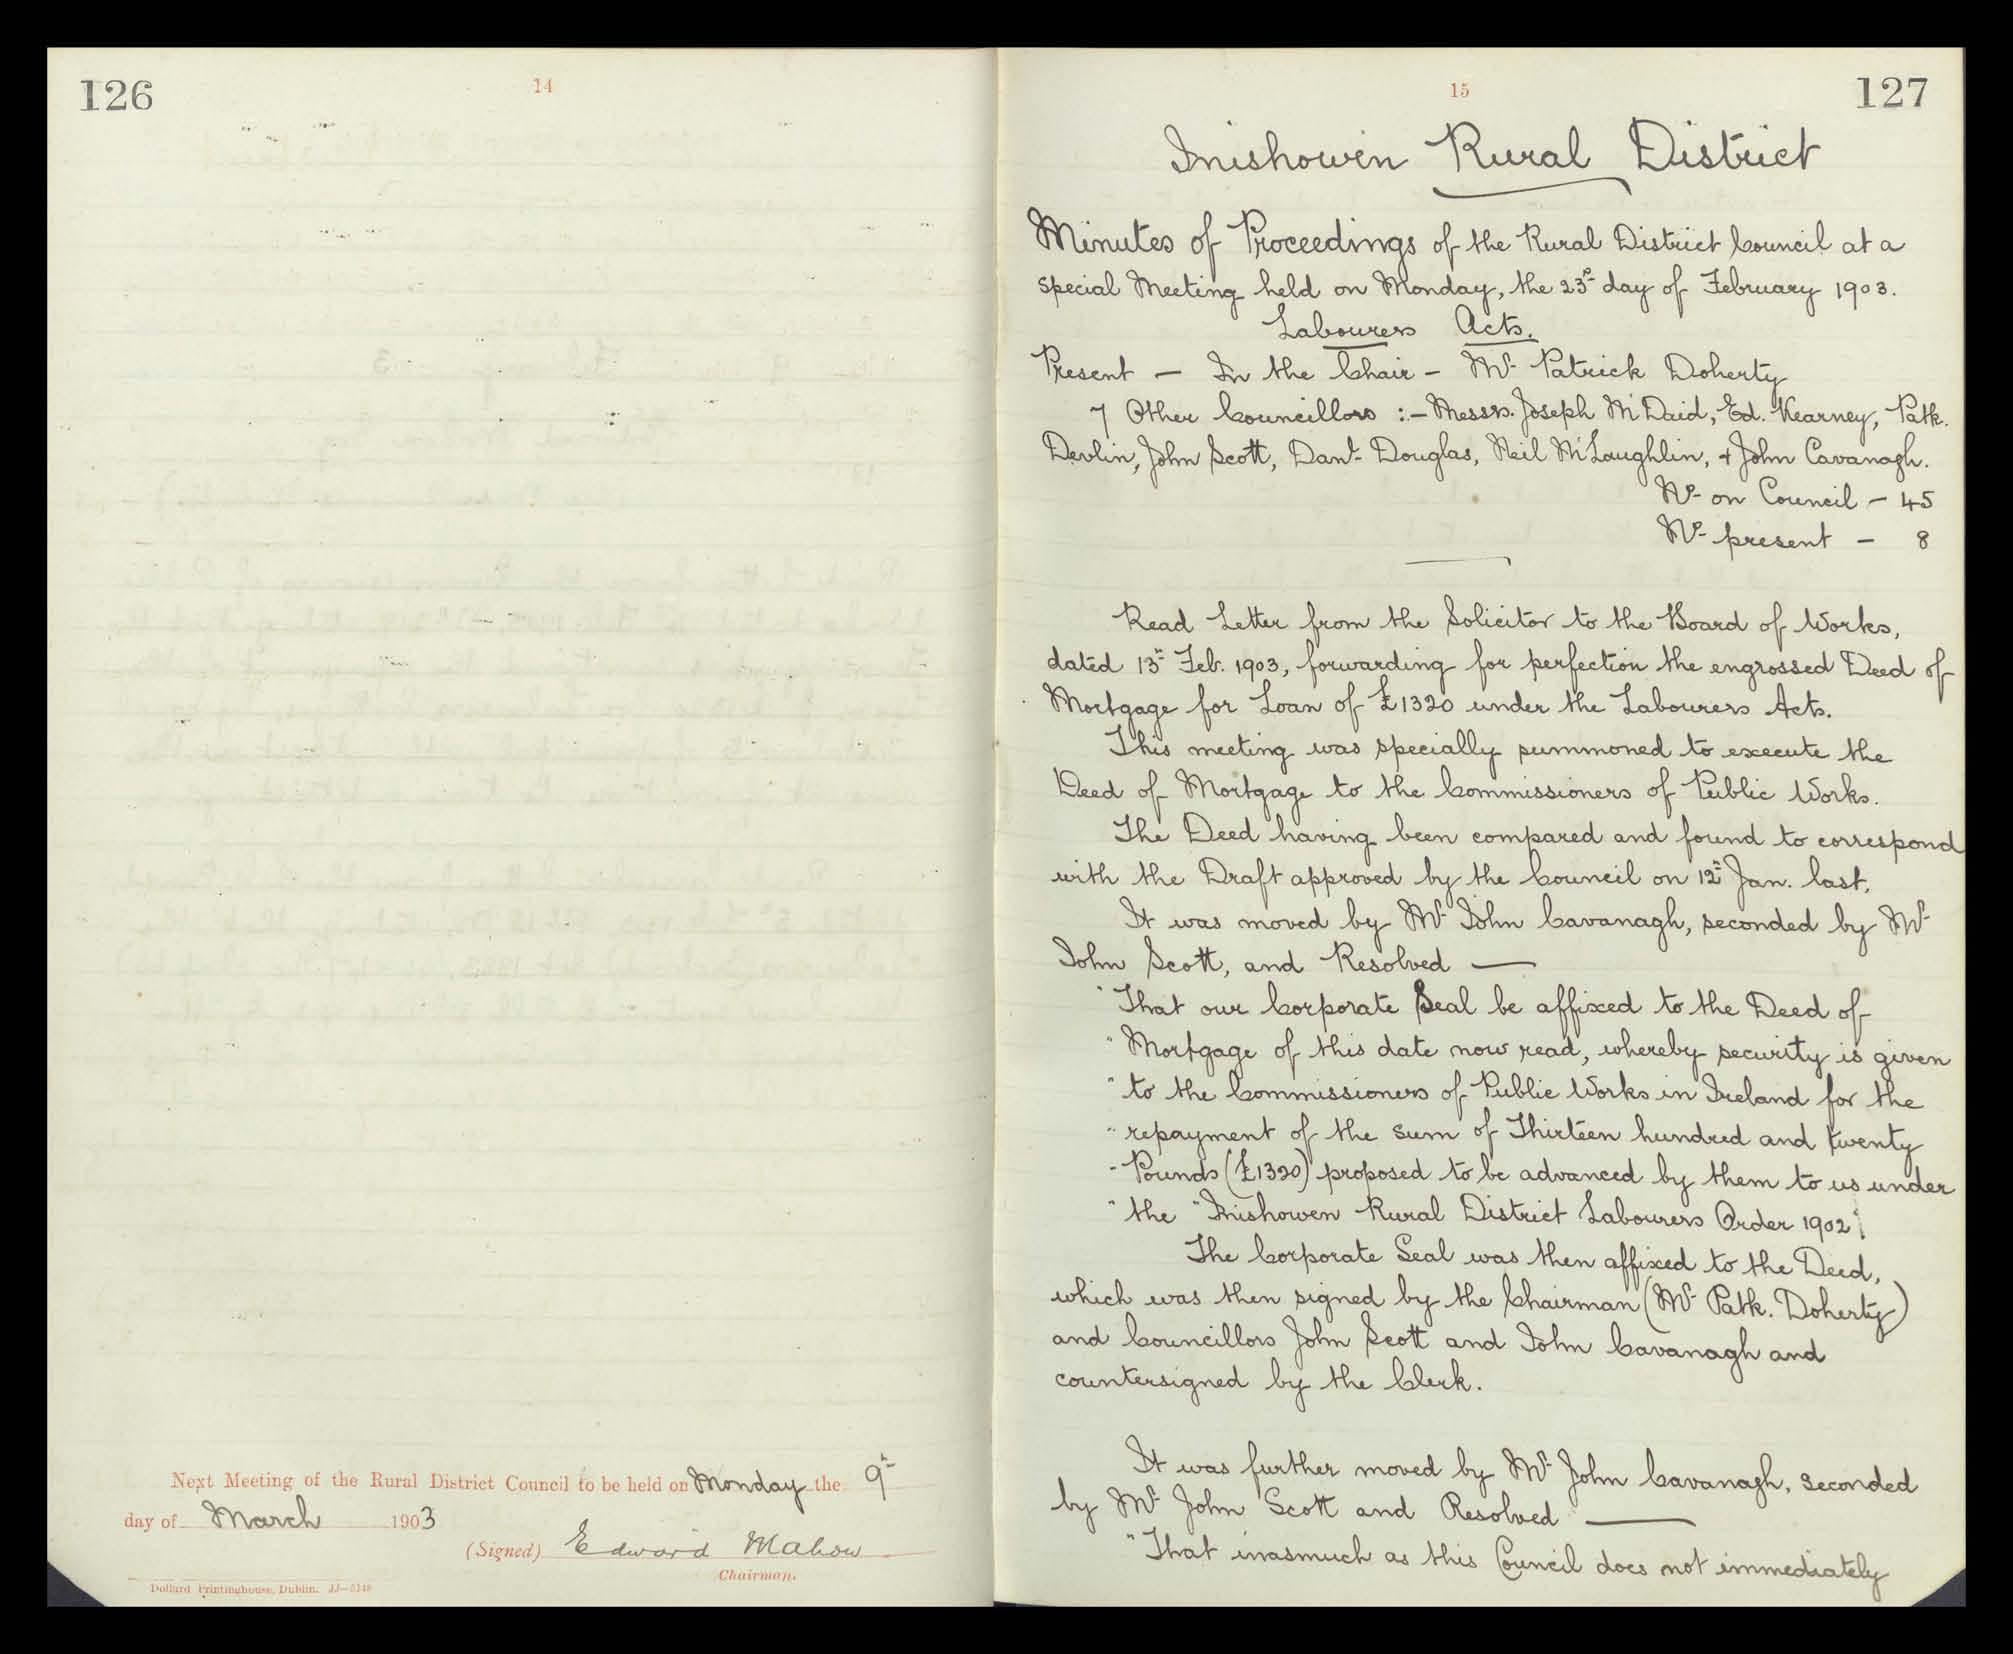 126
14
Next Meeting of the Rural District Council to be held on Monday the 9th
day of March 1903
(Signed) Edward Mahon
Chairman.
Dollard Printinghouse, Dublin. JJ—5148
15
127
Inishowen Rural District
Minutes of Proceedings of the Rural District Council at a
special Meeting held on Monday, the 23rd day of February 1903.
Labourers Acts.
Present — In the Chair — Mr Patrick Doherty
7 Other Councillors :— Messrs. Joseph McDaid, Ed. Kearney, Patk.
Devlin, John Scott, Danl Douglas, Neil McLaughlin, & John Cavanagh.
No on Council — 45
No present — 8
Read Letter from the Solicitor to the Board of Works,
dated 13th Feb. 1903, forwarding for perfection the engrossed Deed of
Mortgage for Loan of £1320 under the Labourers Acts.
This meeting was specially summoned to execute the
Deed of Mortgage to the Commissioners of Public Works.
The Deed having been compared and found to correspond
with the Draft approved by the Council on 12th Jan. last,
It was moved by Mr John Cavanagh, seconded by Mr
John Scott, and Resolved —
"That our Corporate Seal be affixed to the Deed of
"Mortgage of this date now read, whereby security is given
"to the Commissioners of Public Works in Ireland for the
"repayment of the sum of Thirteen hundred and twenty
"Pounds (£1320) proposed to be advanced by them to us under
"the "Inishowen Rural District Labourers Order 1902".
The Corporate Seal was then affixed to the Deed,
which was then signed by the Chairman (Mr Patk. Doherty)
and Councillors John Scott and John Cavanagh and
countersigned by the Clerk.
It was further moved by Mr John Cavanagh, seconded
by Mr John Scott and Resolved —
"That inasmuch as this Council does not immediately